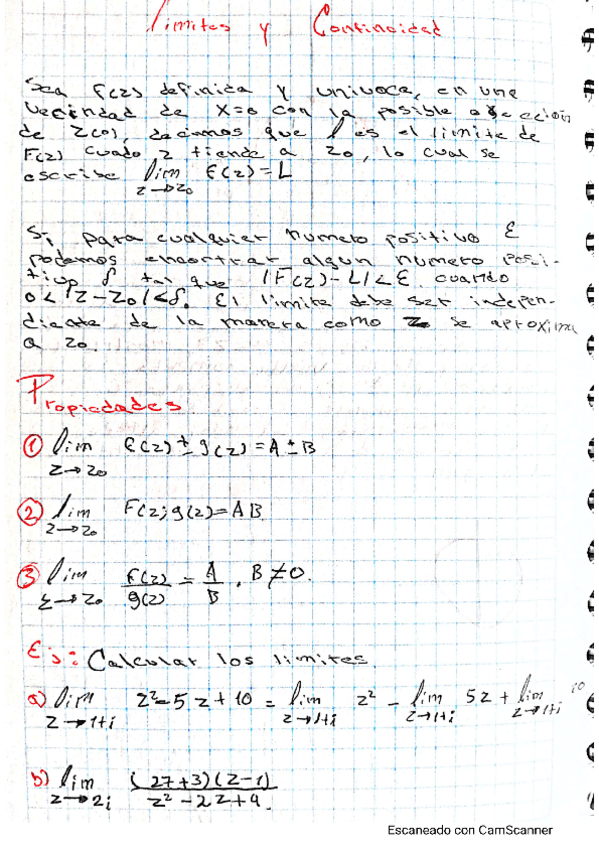 Limites y Continuidad
Sea F(z) definida y univoca, en una
vecindad de X=0 con la posible
de Z(0), decimos que l es el limite de
F(z) cuado z tiende a z0, lo cual se
escribe lim z→z0 F(z)=L
Si para cualquier numero positivo ε
podemos encontrar algun numero posi-
tivo δ tal que |F(z)-L|<ε cuando
0<|z-z0|<δ. El limite debe ser indepen-
diente de la manera como z se aproxima
a z0.
Propiedades
① lim z→z0 F(z) ± g(z) = A ± B
② lim z→z0 F(z; g(z) = AB
③ lim z→z0 F(z)/g(z) = A/B, B≠0.
Ej: Calcular los limites
a) lim z→1+i z²-5z+10 = lim z→1+i z² - lim z→1+i 5z + lim z→1+i 10
b) lim z→2i (2z+3)(z-1)/z²-2z+4.
Escaneado con CamScanner